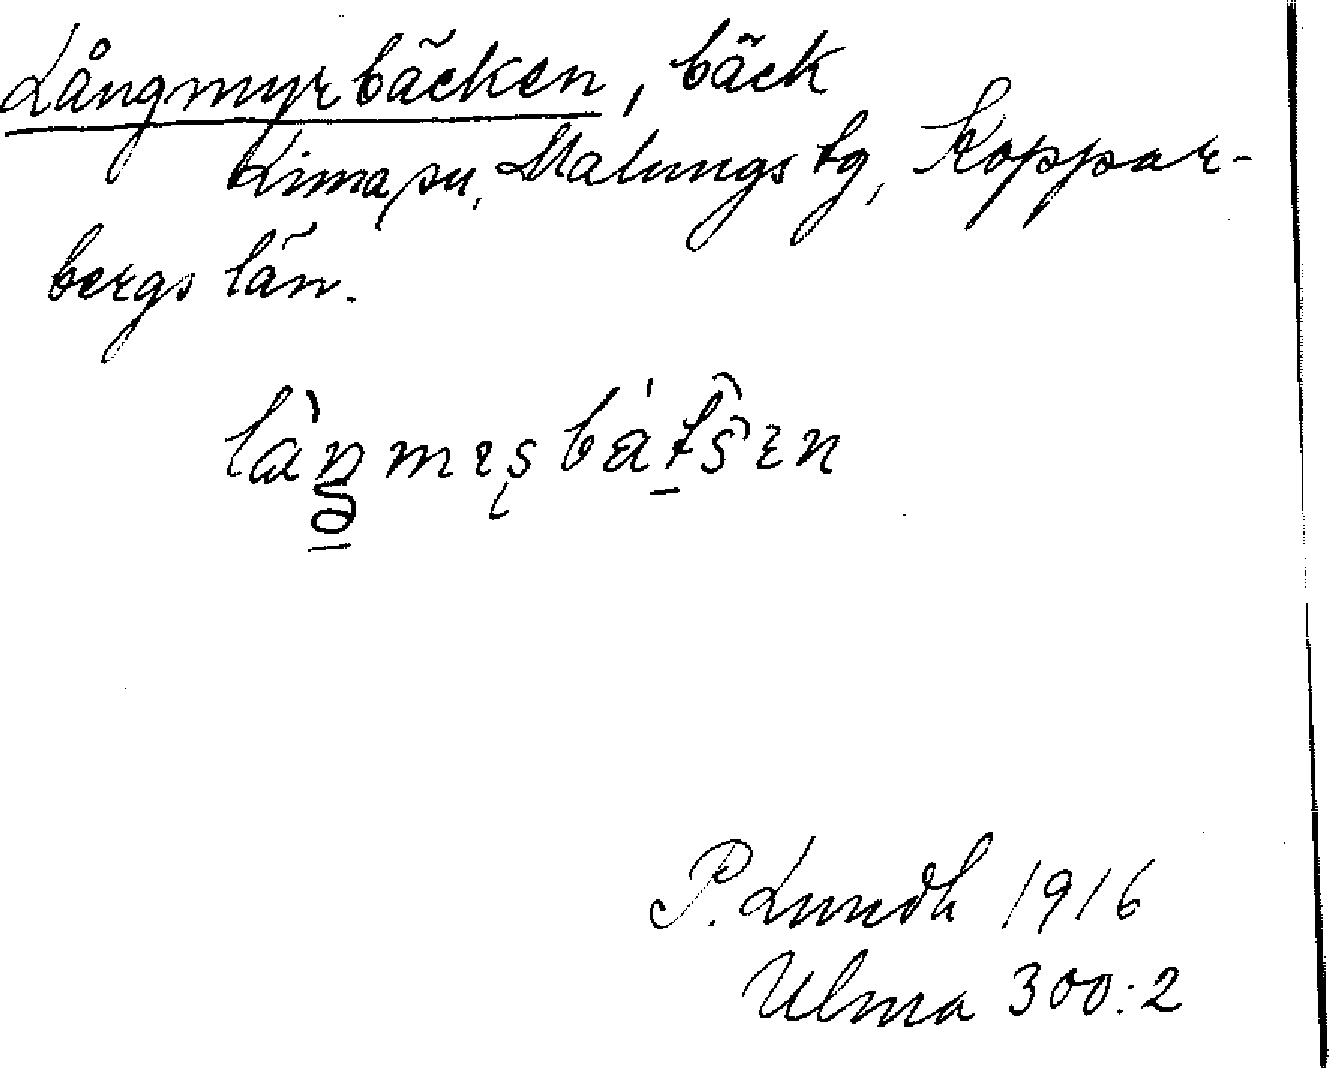 Långmyrbäcken, bäck
Lima sn, Malungs tg, Koppar-
bergs län.
P. Lundh 1916
Ulma 300:2